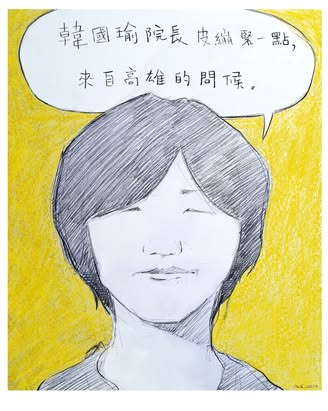 韓國瑜院長皮繃緊一點,
來自高雄的問候。